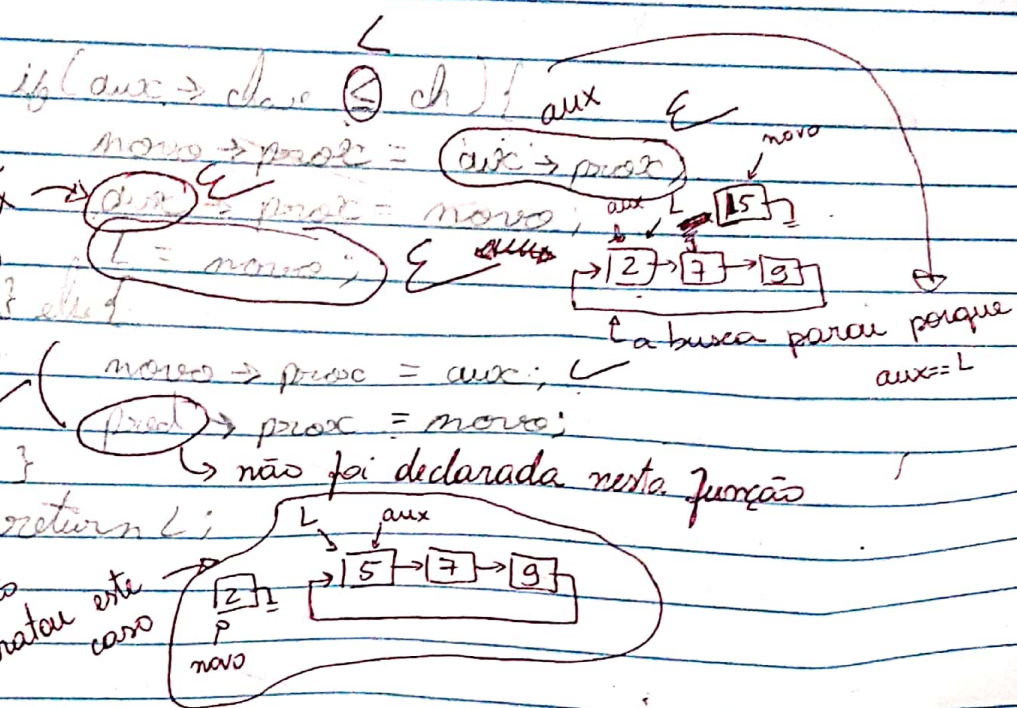 L
if (aux → chave ≤ ch) {
aux
novo → prox = aux → prox;
novo
aux → prox = novo;
aux L
15
L = novo;
2 → 7 → 9
} else {
a busca parou porque
aux == L
novo → prox = aux;
pred → prox = novo;
não foi declarada nesta função
}
return L;
L aux
5 → 7 → 9
2
este
caso
novo